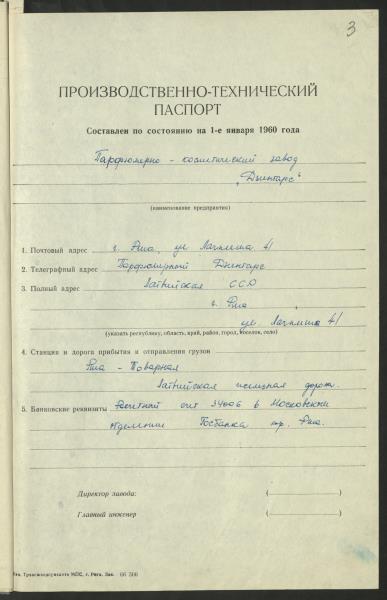 3
ПРОИЗВОДСТВЕННО-ТЕХНИЧЕСКИЙ
ПАСПОРТ
Составлен по состоянию на 1-е января 1960 года
Парфюмерно - косметический завод
„Дзинтарс"
(наименование предприятия)
1. Почтовый адрес г. Рига, ул Лачплиша 41
2. Телеграфный адрес Парфюмерный Дзинтарс
3. Полный адрес Латвийская ССР
г. Рига
ул. Лачплиша 41
(указать республику, область, край, район, город, поселок, село)
4. Станция и дорога прибытия и отправления грузов
Рига - Товарная
Латвийская железная дорога.
5. Банковские реквизиты Расчетный счет 34006 в Московском
отделении Госбанка гор. Рига.
Директор завода: ( )
Главный инженер ( )
Тип. Трансжелдориздата МПС, г. Рига. Зак.